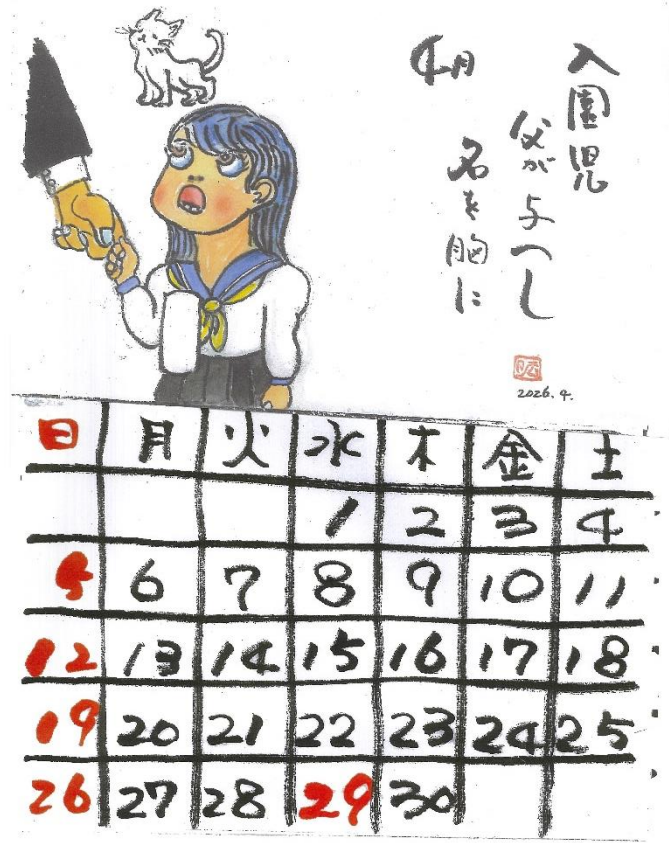 入園児
父が与へし
名を胸に
4月
2026.4.
日 月 火 水 木 金 土
1 2 3 4
5 6 7 8 9 10 11
12 13 14 15 16 17 18
19 20 21 22 23 24 25
26 27 28 29 30